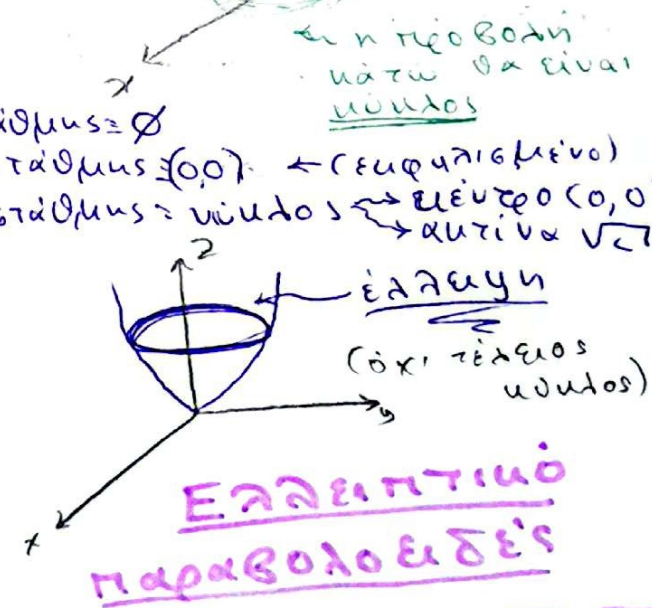 η προβολή
κάτω θα είναι
κύκλος
x
άθμης = ∅
τάθμης = (0,0). ← (εκφυλισμένο)
στάθμης = κύκλος → κέντρο (0,0
→ ακτίνα √c
z
έλλειψη
(όχι τέλειος
κύκλος)
y
x
Ελλειπτικό
παραβολοειδές